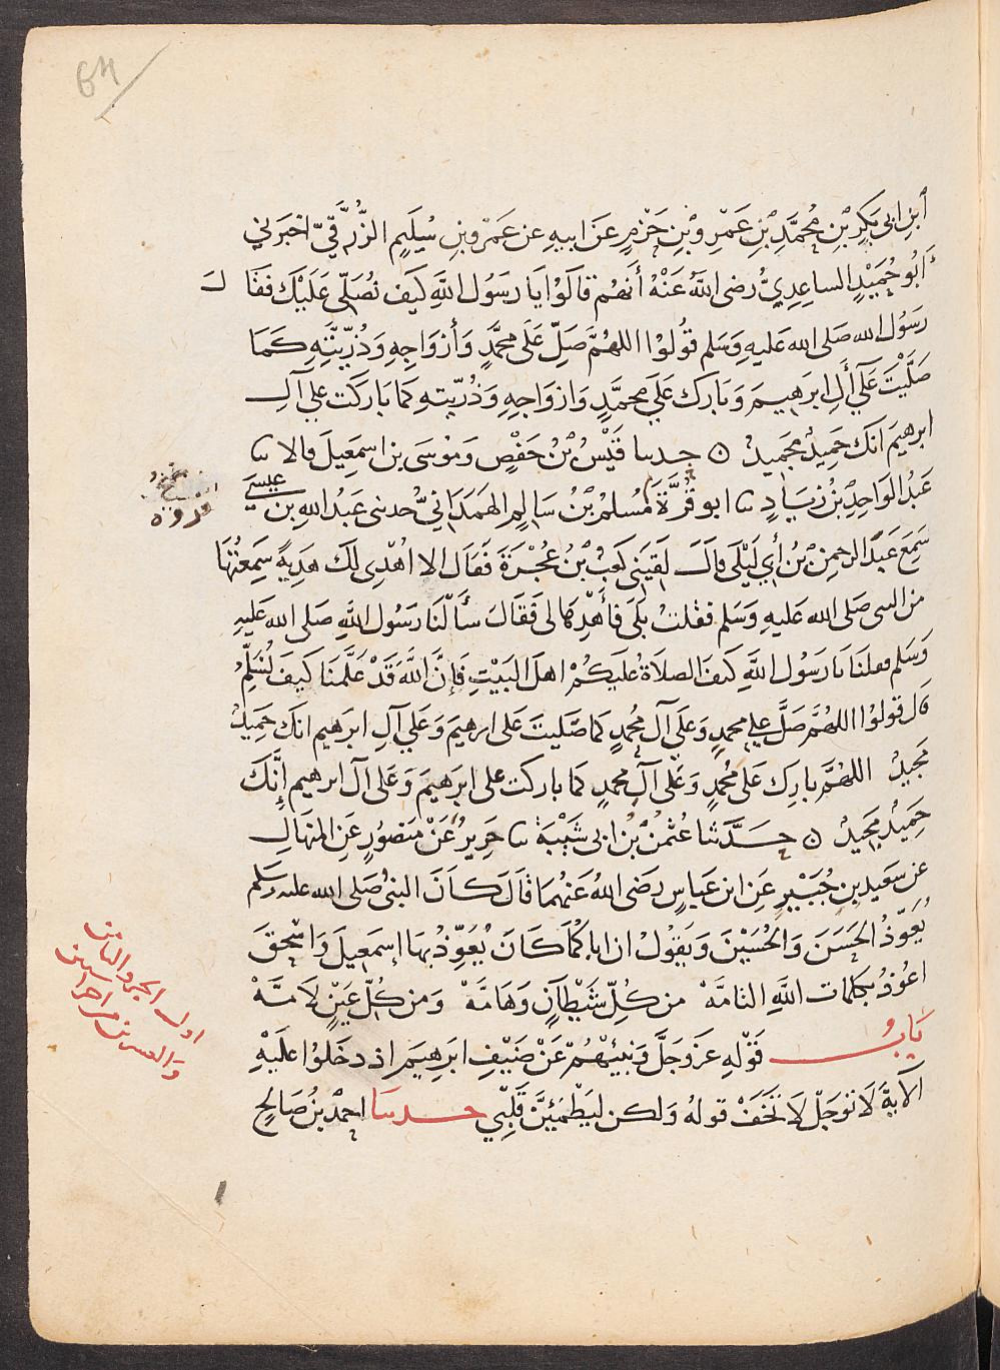 64
ابن ابى بَكرِ بْنِ مُحمَّدِ بْنِ عَمْرِو بْنِ حَزْمٍ عَن ابيهِ عن عَمْرِو بنِ سُلَيمٍ الزُّرَقِيِّ اخبَرَني
أبُو حُمَيْدٍ الساعِدِيُّ رضى اللهُ عَنْهُ أنهُم قالَوُا يَا رسَوُل اللهِ كيَف نُصَلّى عَلَيْكَ فَقَا لَ
رسَوُل الله صَلى الله عَليهِ وَسَلم قُولُوْا اللهُمَّ صَلِّ عَلَى محمَّدٍ وَأزْوَاجِهِ وَذُرّيَّتِهِ كَمَا
صَلَّيْتَ عَلَى أَلِ ابرَهِيمَ وَبَارك عَلَي محمَّدٍ وَازوَاجِهِ وَذُرّيتهِ كمَا بَاركَت علي آلِ
ابرهيمَ انكَ حَمِيدٌ مجَميدٌ ۝ حدىىا قَيْسُ بْنُ حَفْصٍ وَمَوْسَى بن اسمَعِيلَ قالا ىا
عَبدُ الوَاحِدِ بْنُ زيَادٍ ىا ابو قُرَّةَ مُسلمُ بْنُ سَالِمٍ الهَمَدَانيُّ حدىنى عَبدُ اللهِ بن عيسَى
سَمِعَ عَبدَ الرحمنِ بْنُ أبي لَيْلَى قالَ لَقيَني كَعْبُ بْنُ عُجْرَةَ فَقَال الا اهُدِى لكَ هَدِيةً سَمِعتُهَا
من النبى صَلى الله عَليهِ وَسَلم فقلتُ بَلَى فأَهْدِهَا لى فَقَالَ سَأَلنَا رَسُول اللهِ صَلى الله عَليهِ
وَسَلم فقلنَا يَا رسَوُل اللهِ كَيفَ الصلاَةُ عليَكمُْ اهلَ البَيْتِ فَإنَّ اللهَ قَدْ عَلَّمَنَا كَيفَ نُسَلِّمُ
قال قولوُا اللهُمَّ صَلَّ علي محمدٍ وَعَلَى آلِ محُمدٍ كمَا صَليتَ عَلى ابرهيمَ وَعَلي آلِ ابرَهيم انكَ حَميدٌ
مجيدٌ اللهُمَّ بارِك عَلى محُمدٍ وَعَلى آلِ محمدٍ كمَا باركت على ابرَهيمَ وَعَلى آل ابرهيم إنَّكَ
حَمِيدٌ مجَيدٌ ۝ حَدَّثَنا عُثمنُ بْنُ ابى شَيْبَةَ ىا جَرِيرٌ عَنْ مَنصُورٍ عَنِ المنهَالِ
عن سَعِيدِ بنِ جُبَيْرٍ عَنِ ابن عَباسٍ رضَى اللهُ عَنهُمَا قَالَ كَانَ النبىُ صَلى الله عليه وسَلم
يُعَوِّذُ الحَسَنَ وَالحُسَيْنَ وَيَقولُ ان اباكُمَا كَانَ يُعَوِّذُ بهَا إسمَعِيلَ وَاسْحقَ
اعُوذ بكلمات اللهِ التامَّهْ من كُلِّ شَيْطَانٍ وَهَامَّهْ وَمن كُلِّ عَيْنٍ لاَمَّهْ
بَابُ قَوْلِهِ عزَوَجَلَّ وَنَبِّئْهُمْ عَنْ ضَيْفِ ابرَهِيمَ اذ دخَلوُا عليَهِ
الآيةَ لاَ تَوْجَلْ لاَ تخَفْ قولهُ وَلكن ليَطْمَئِنَّ قَلْبِي حدىىا احمدُ بنُ صَالحٍ
فروه
اول الجزو الثامن
والعشرين من اجزا ستين